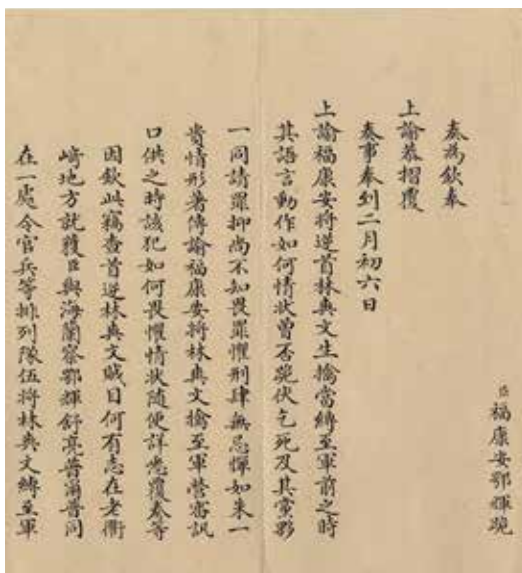 臣福康安鄂輝跪
奏為欽奉
上諭恭摺覆
奏事奉到二月初六日
上諭福康安將逆首林爽文生擒當縛至軍前之時
其語言動作如何情狀曾否跪伏乞死及其黨夥
一同請罪抑尚不知畏罪懼刑肆無忌憚如朱一
貴情形著傳諭福康安將林爽文擒至軍營審訊
口供之時該犯如何畏懼情狀隨便詳悉覆奏等
因欽此竊查首逆林爽文賊目何有志在老衢
崎地方就獲臣與海蘭察鄂輝舒亮普爾普同
在一處令官兵等排列隊伍將林爽文縛至軍